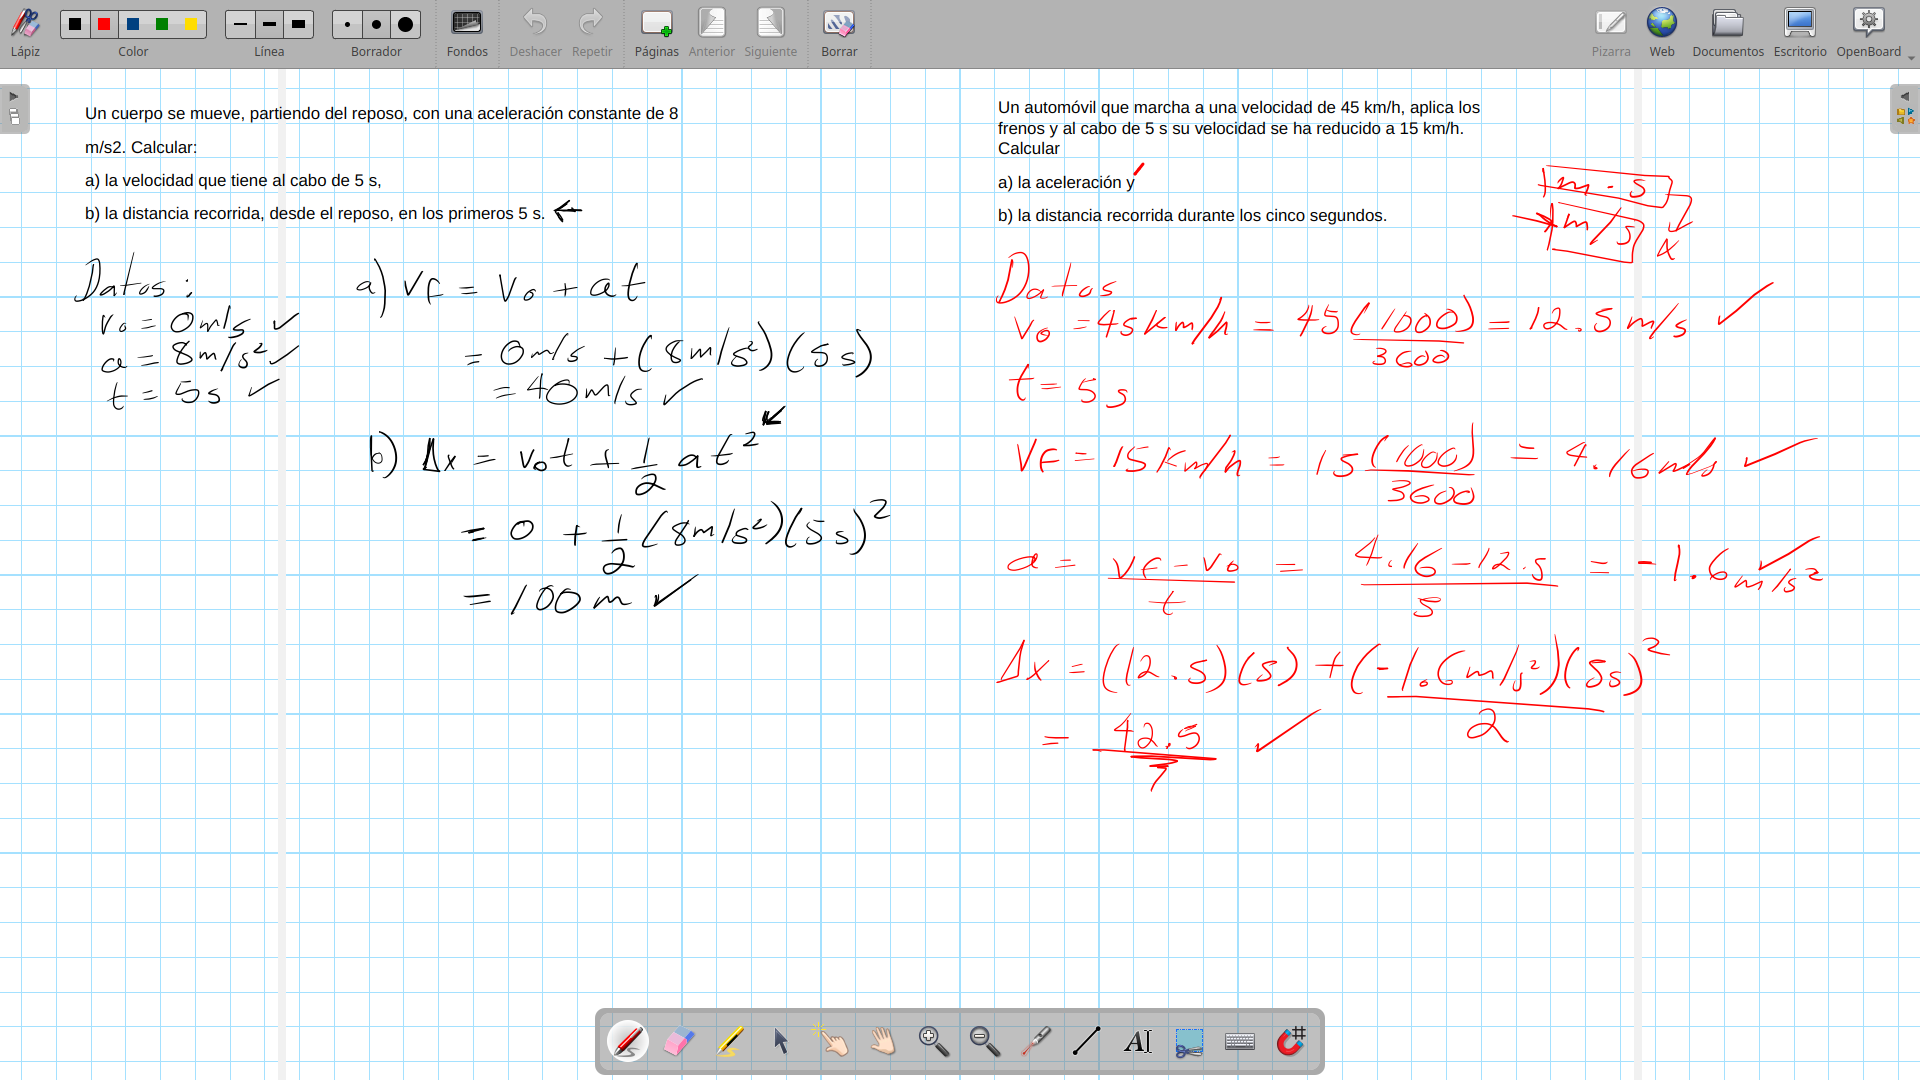 Lápiz Color Línea Borrador Fondos Deshacer Repetir Páginas Anterior Siguiente Borrar Pizarra Web Documentos Escritorio OpenBoard
Un cuerpo se mueve, partiendo del reposo, con una aceleración constante de 8
m/s2. Calcular:
a) la velocidad que tiene al cabo de 5 s,
b) la distancia recorrida, desde el reposo, en los primeros 5 s. ←
Datos :
v₀ = 0m/s ✓
a = 8m/s² ✓
t = 5s ✓
a) vf = v₀ + at
= 0m/s + (8m/s²)(5s)
= 40m/s ✓
b) Δx = v₀t + 1/2 at²
= 0 + 1/2 (8m/s²)(5s)²
= 100m ✓
Un automóvil que marcha a una velocidad de 45 km/h, aplica los
frenos y al cabo de 5 s su velocidad se ha reducido a 15 km/h.
Calcular
a) la aceleración y
b) la distancia recorrida durante los cinco segundos.
m · s
m/s
x
Datos
v₀ = 45km/h = 45(1000)/3600 = 12.5m/s ✓
t = 5s
vf = 15km/h = 15(1000)/3600 = 4.16m/s ✓
a = vf - v₀/t = 4.16 - 12.5/5 = -1.6m/s² ✓
Δx = (12.5)(5) + (-1.6m/s²)(5s)²/2
= 42.5 ✓